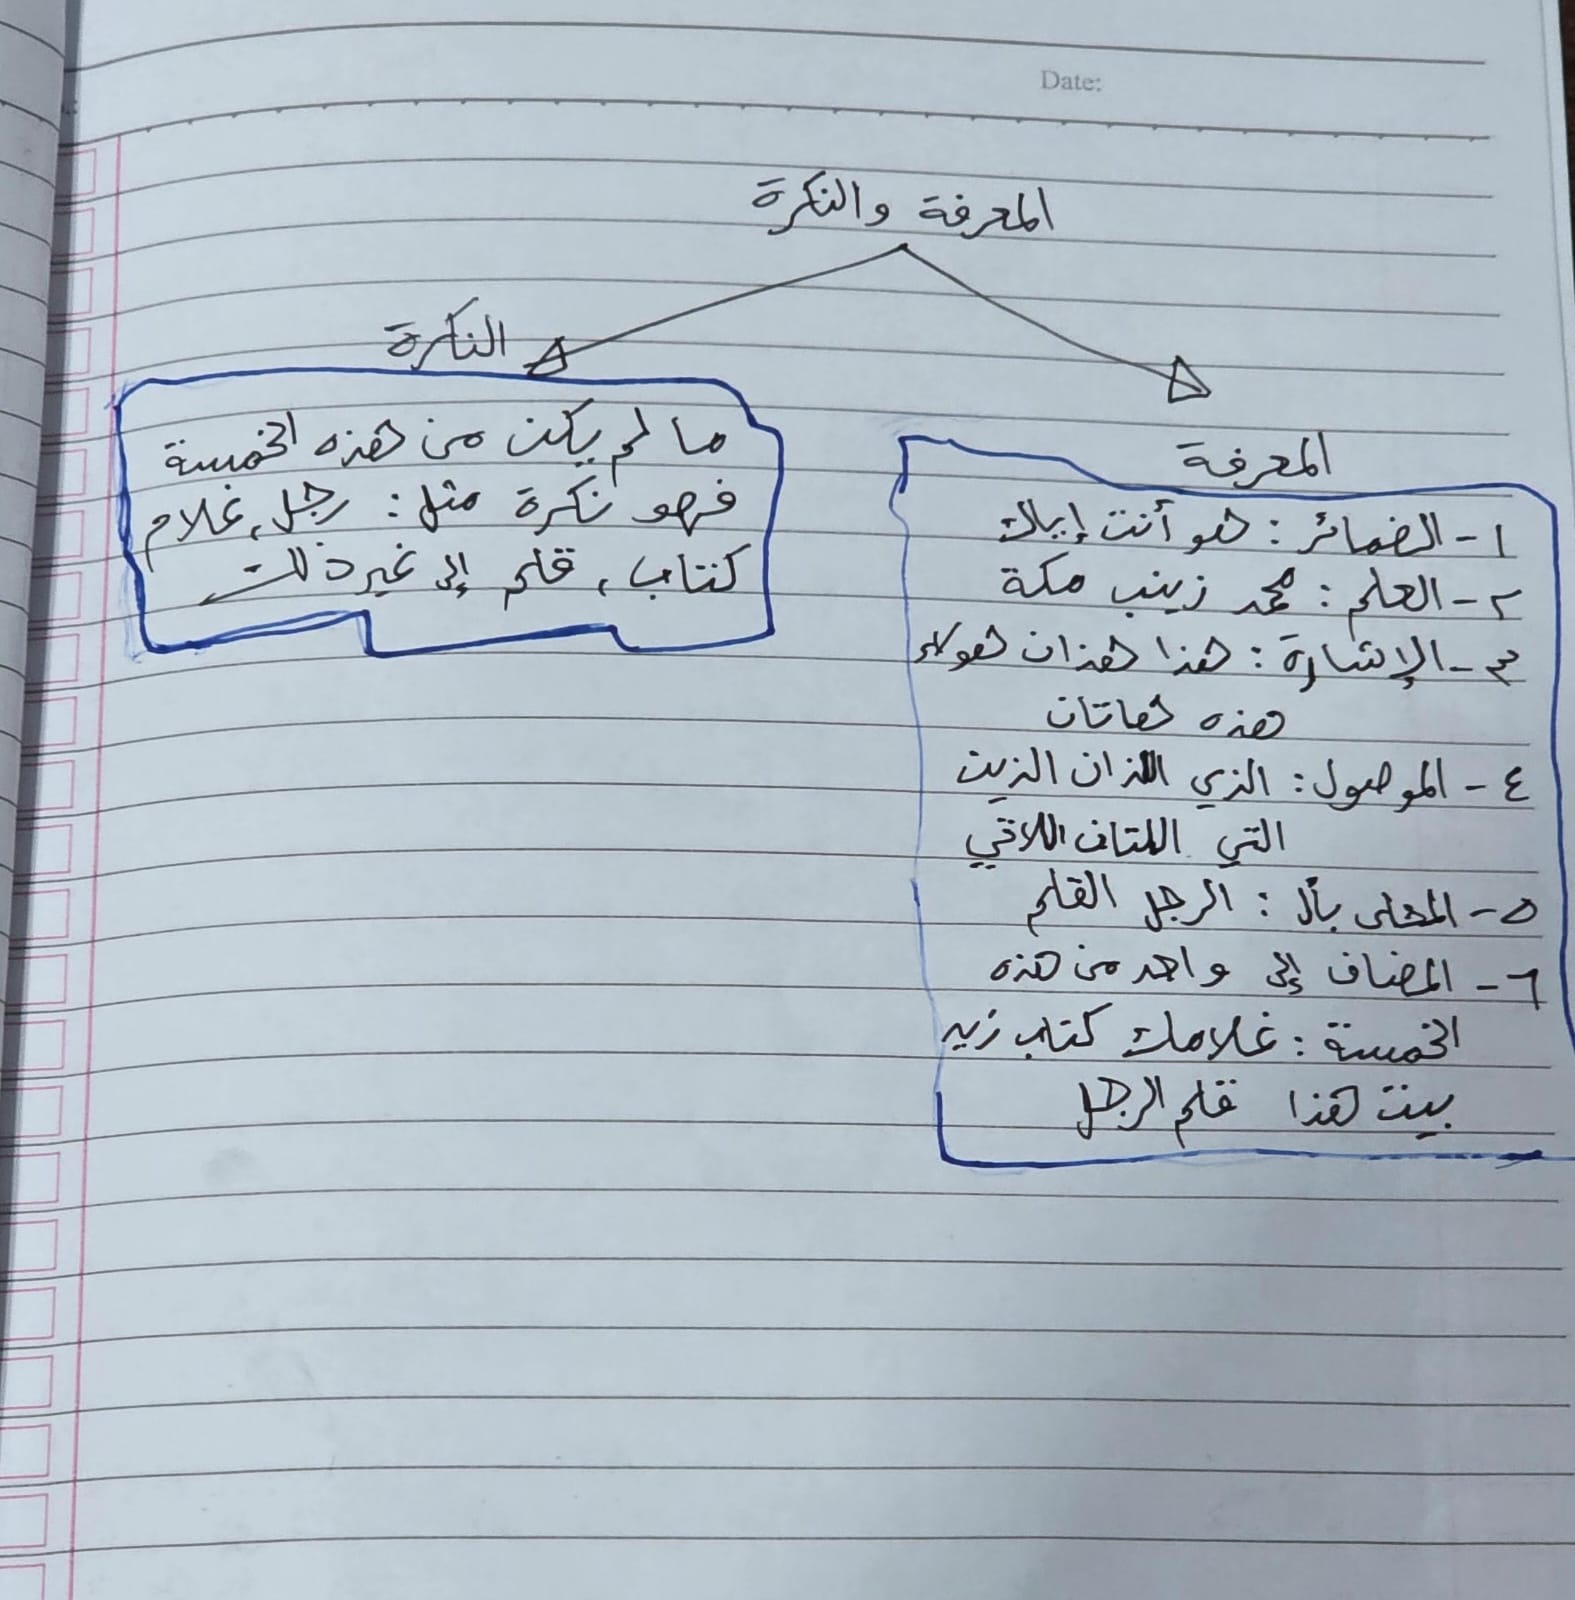 Date:
المعرفة والنكرة
المعرفة
١- الضمائر: هو أنت إياك
٢- العلم: محمد زينب مكة
٣- الإشارة: هذا هذان هولاء
هذه هاتان
٤- الموصول: الذي اللذان الذين
التي اللتان اللاتي
٥- المحلى بأل: الرجل القلم
٦- المضاف إلى واحد من هذه
الخمسة: غلامك كتاب زيد
بيت هذا قلم الرجل
النكرة
ما لم يكن من هذه الخمسة
فهو نكرة مثل: رجل، غلام
كتاب، قلم إلى غير ذلك